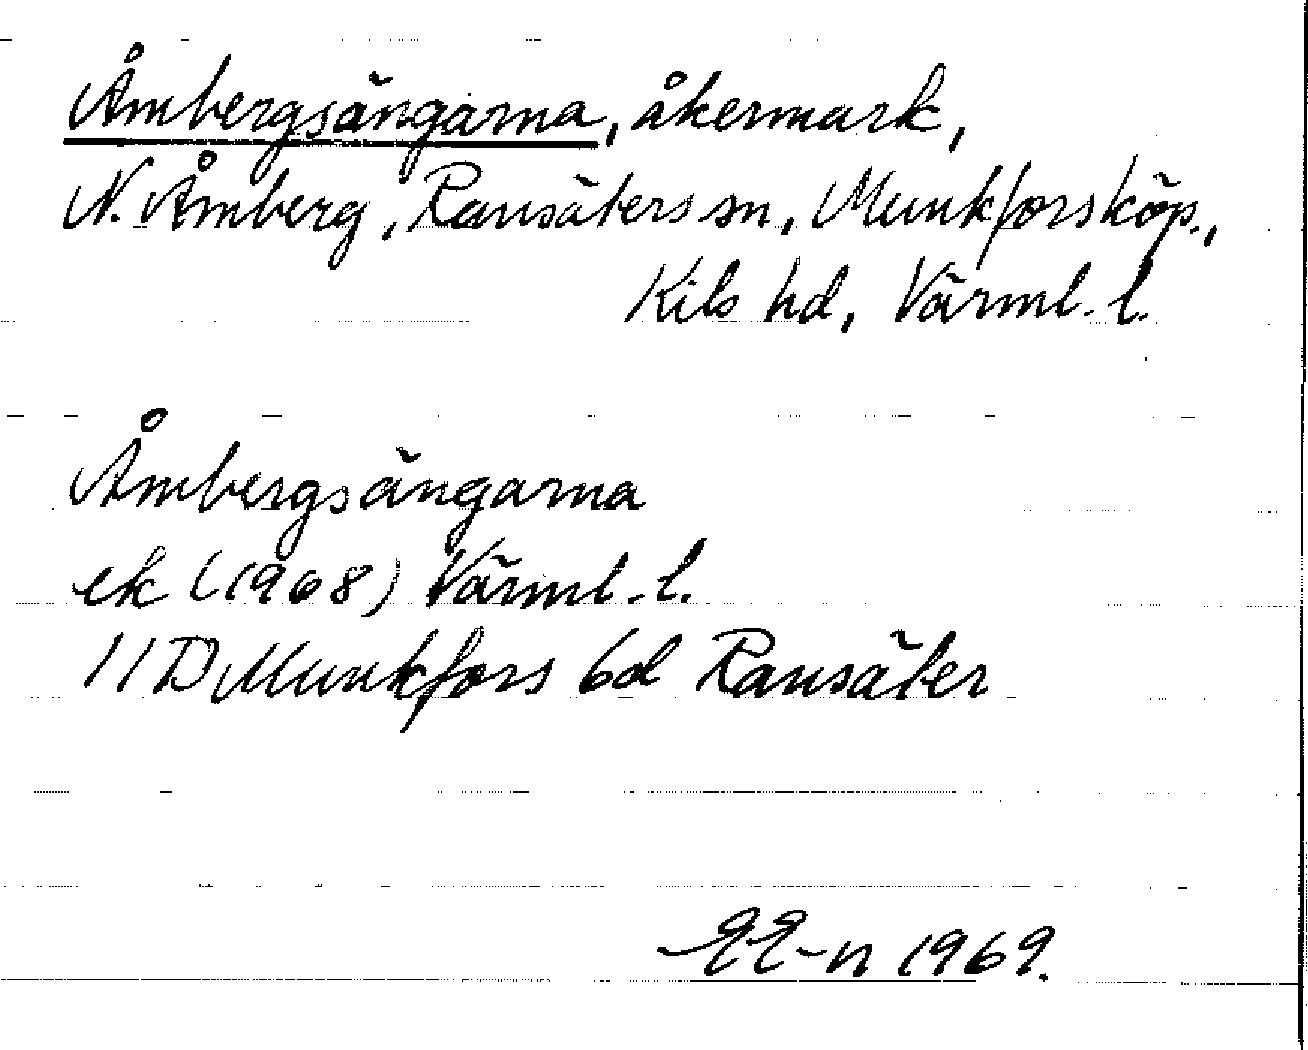 Åmbergsängarna, åkermark,
N. Åmberg, Ransäters sn, Munkfors köp.,
Kils hd, Värml. l.
Åmbergsängarna
ek (1968) Värml. l.
11D Munkfors 6d Ransäter
EE-n 1969.